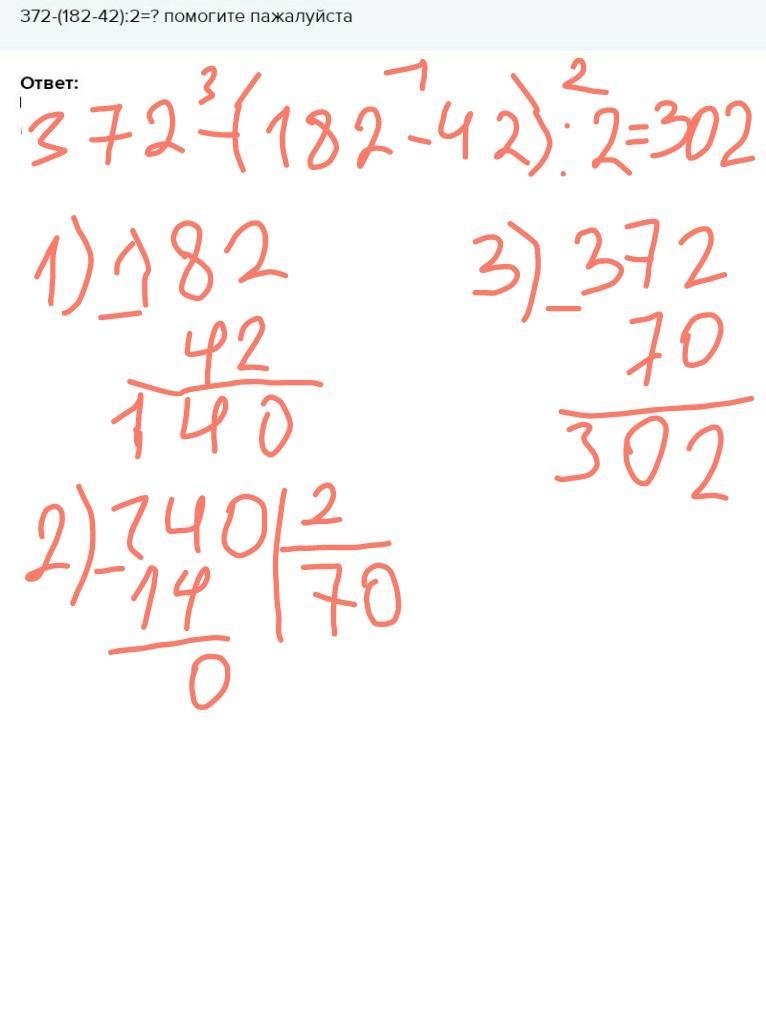 372-(182-42):2=? помогите пажалуйста
Ответ:
3 1 2
372-(182-42):2=302
1) - 182
42
140
2) - 140 | 2
14 70
0
3) - 372
70
302